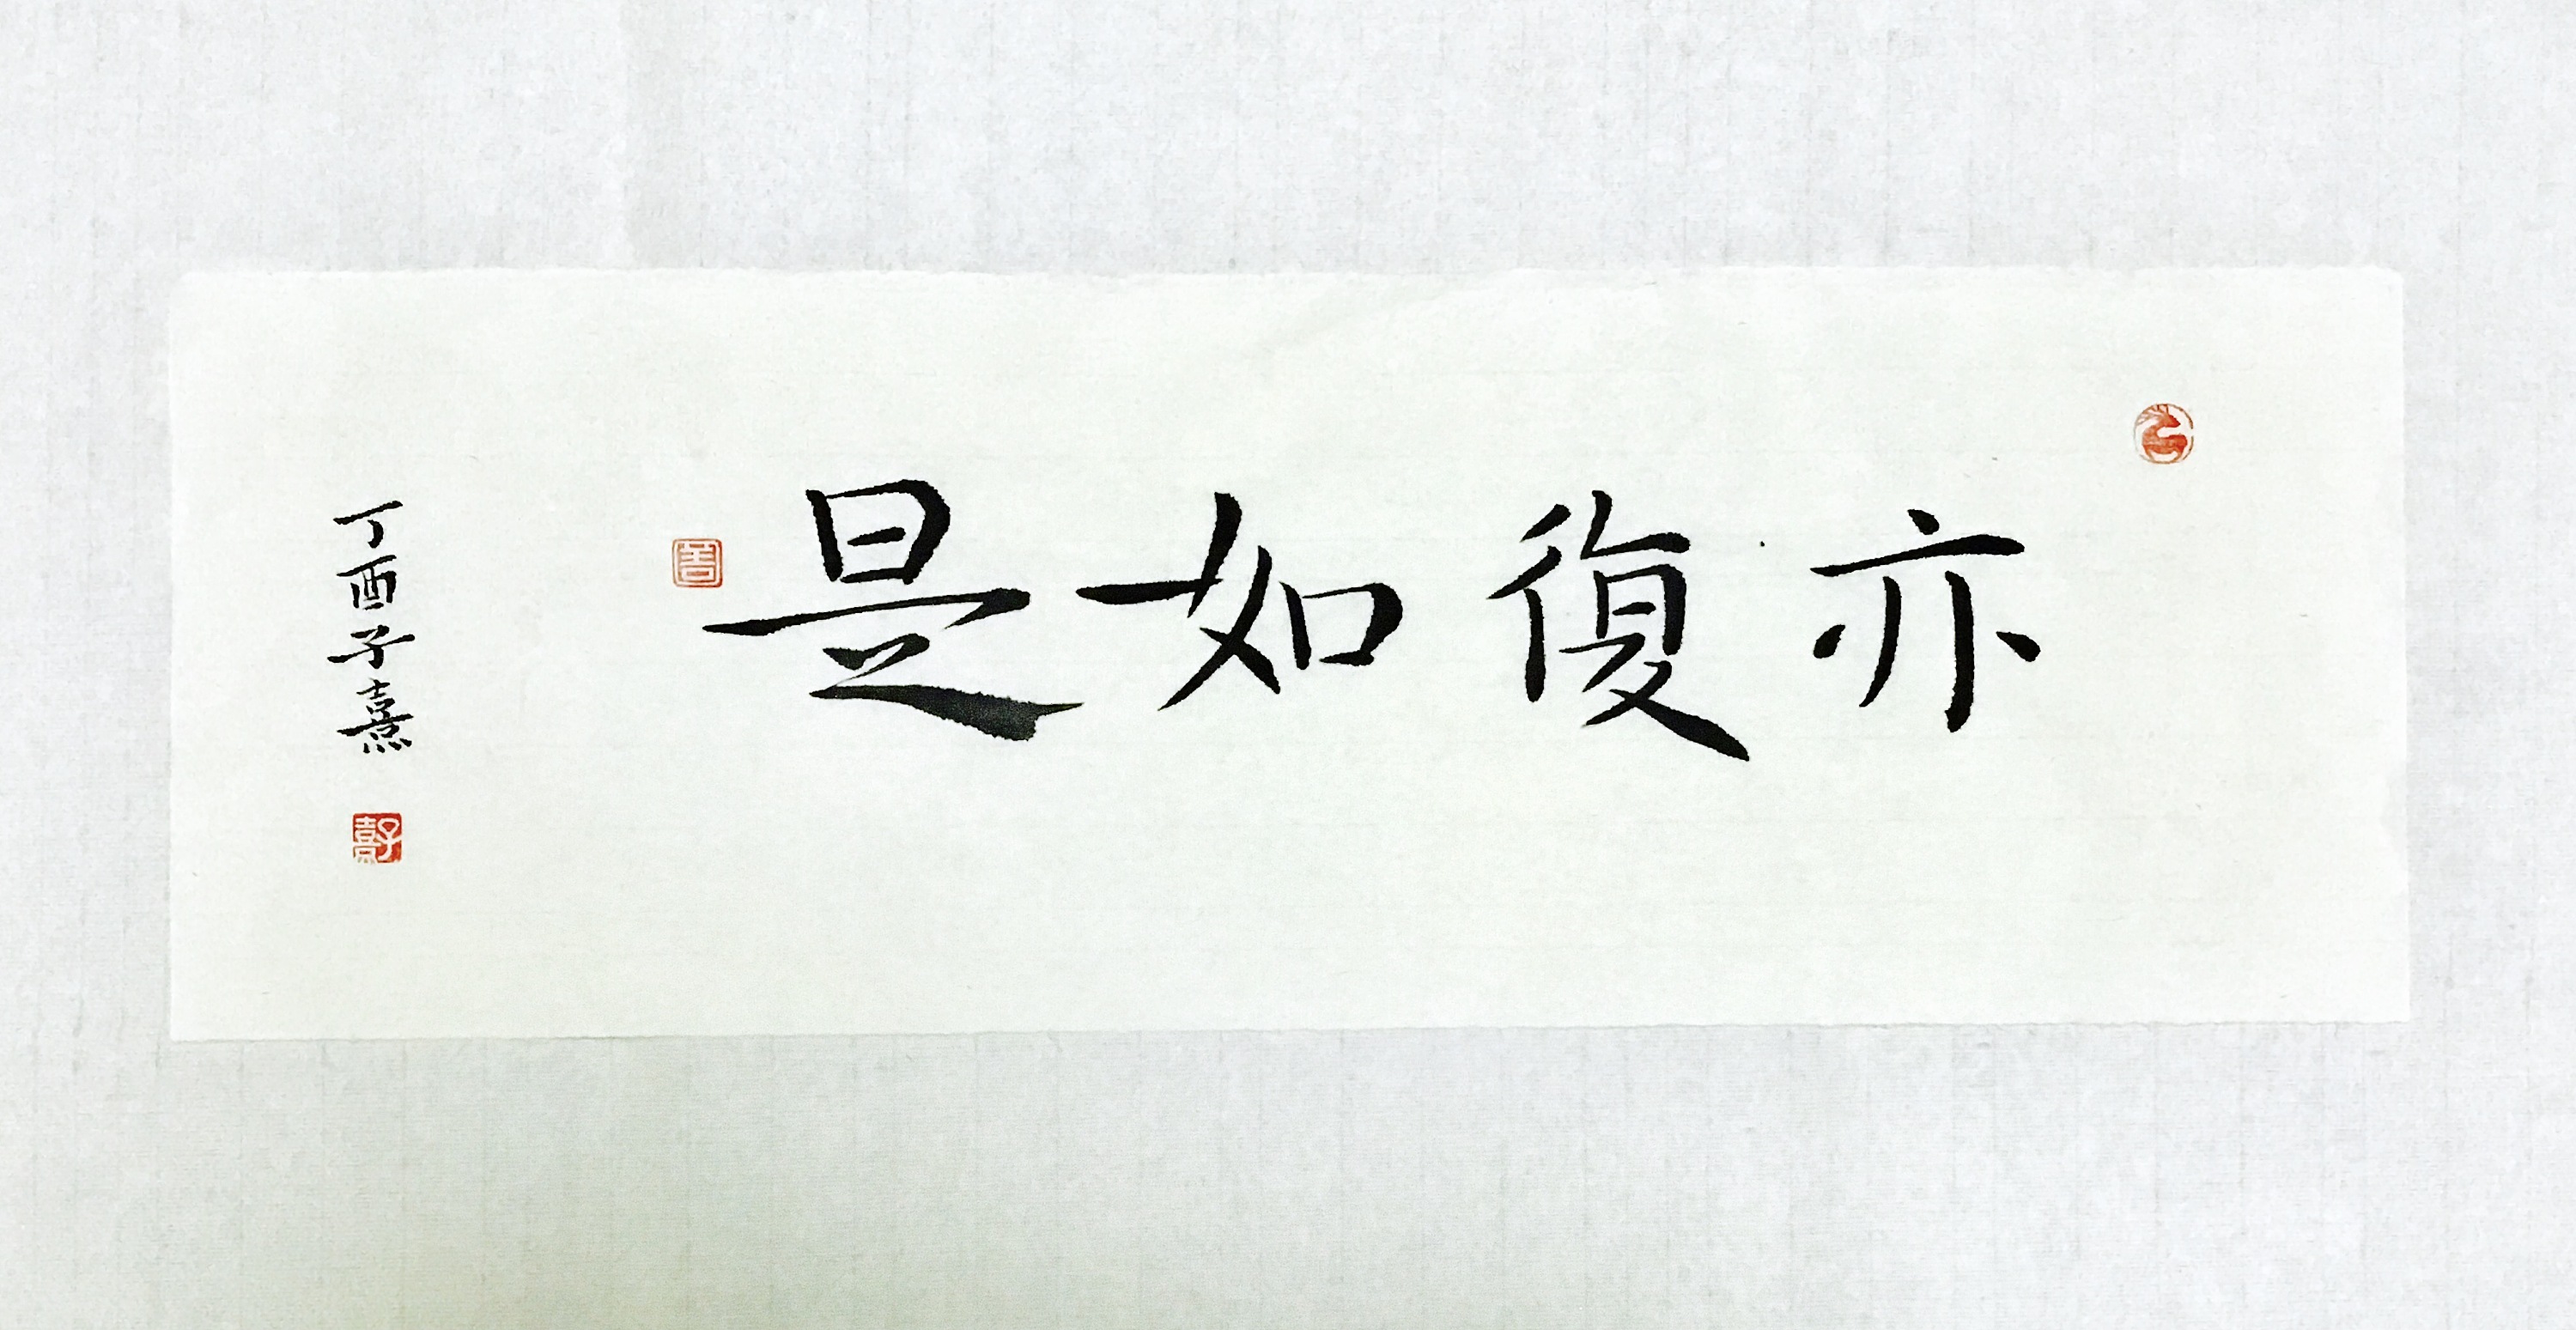 亦復如是
丁酉子熹
子熹